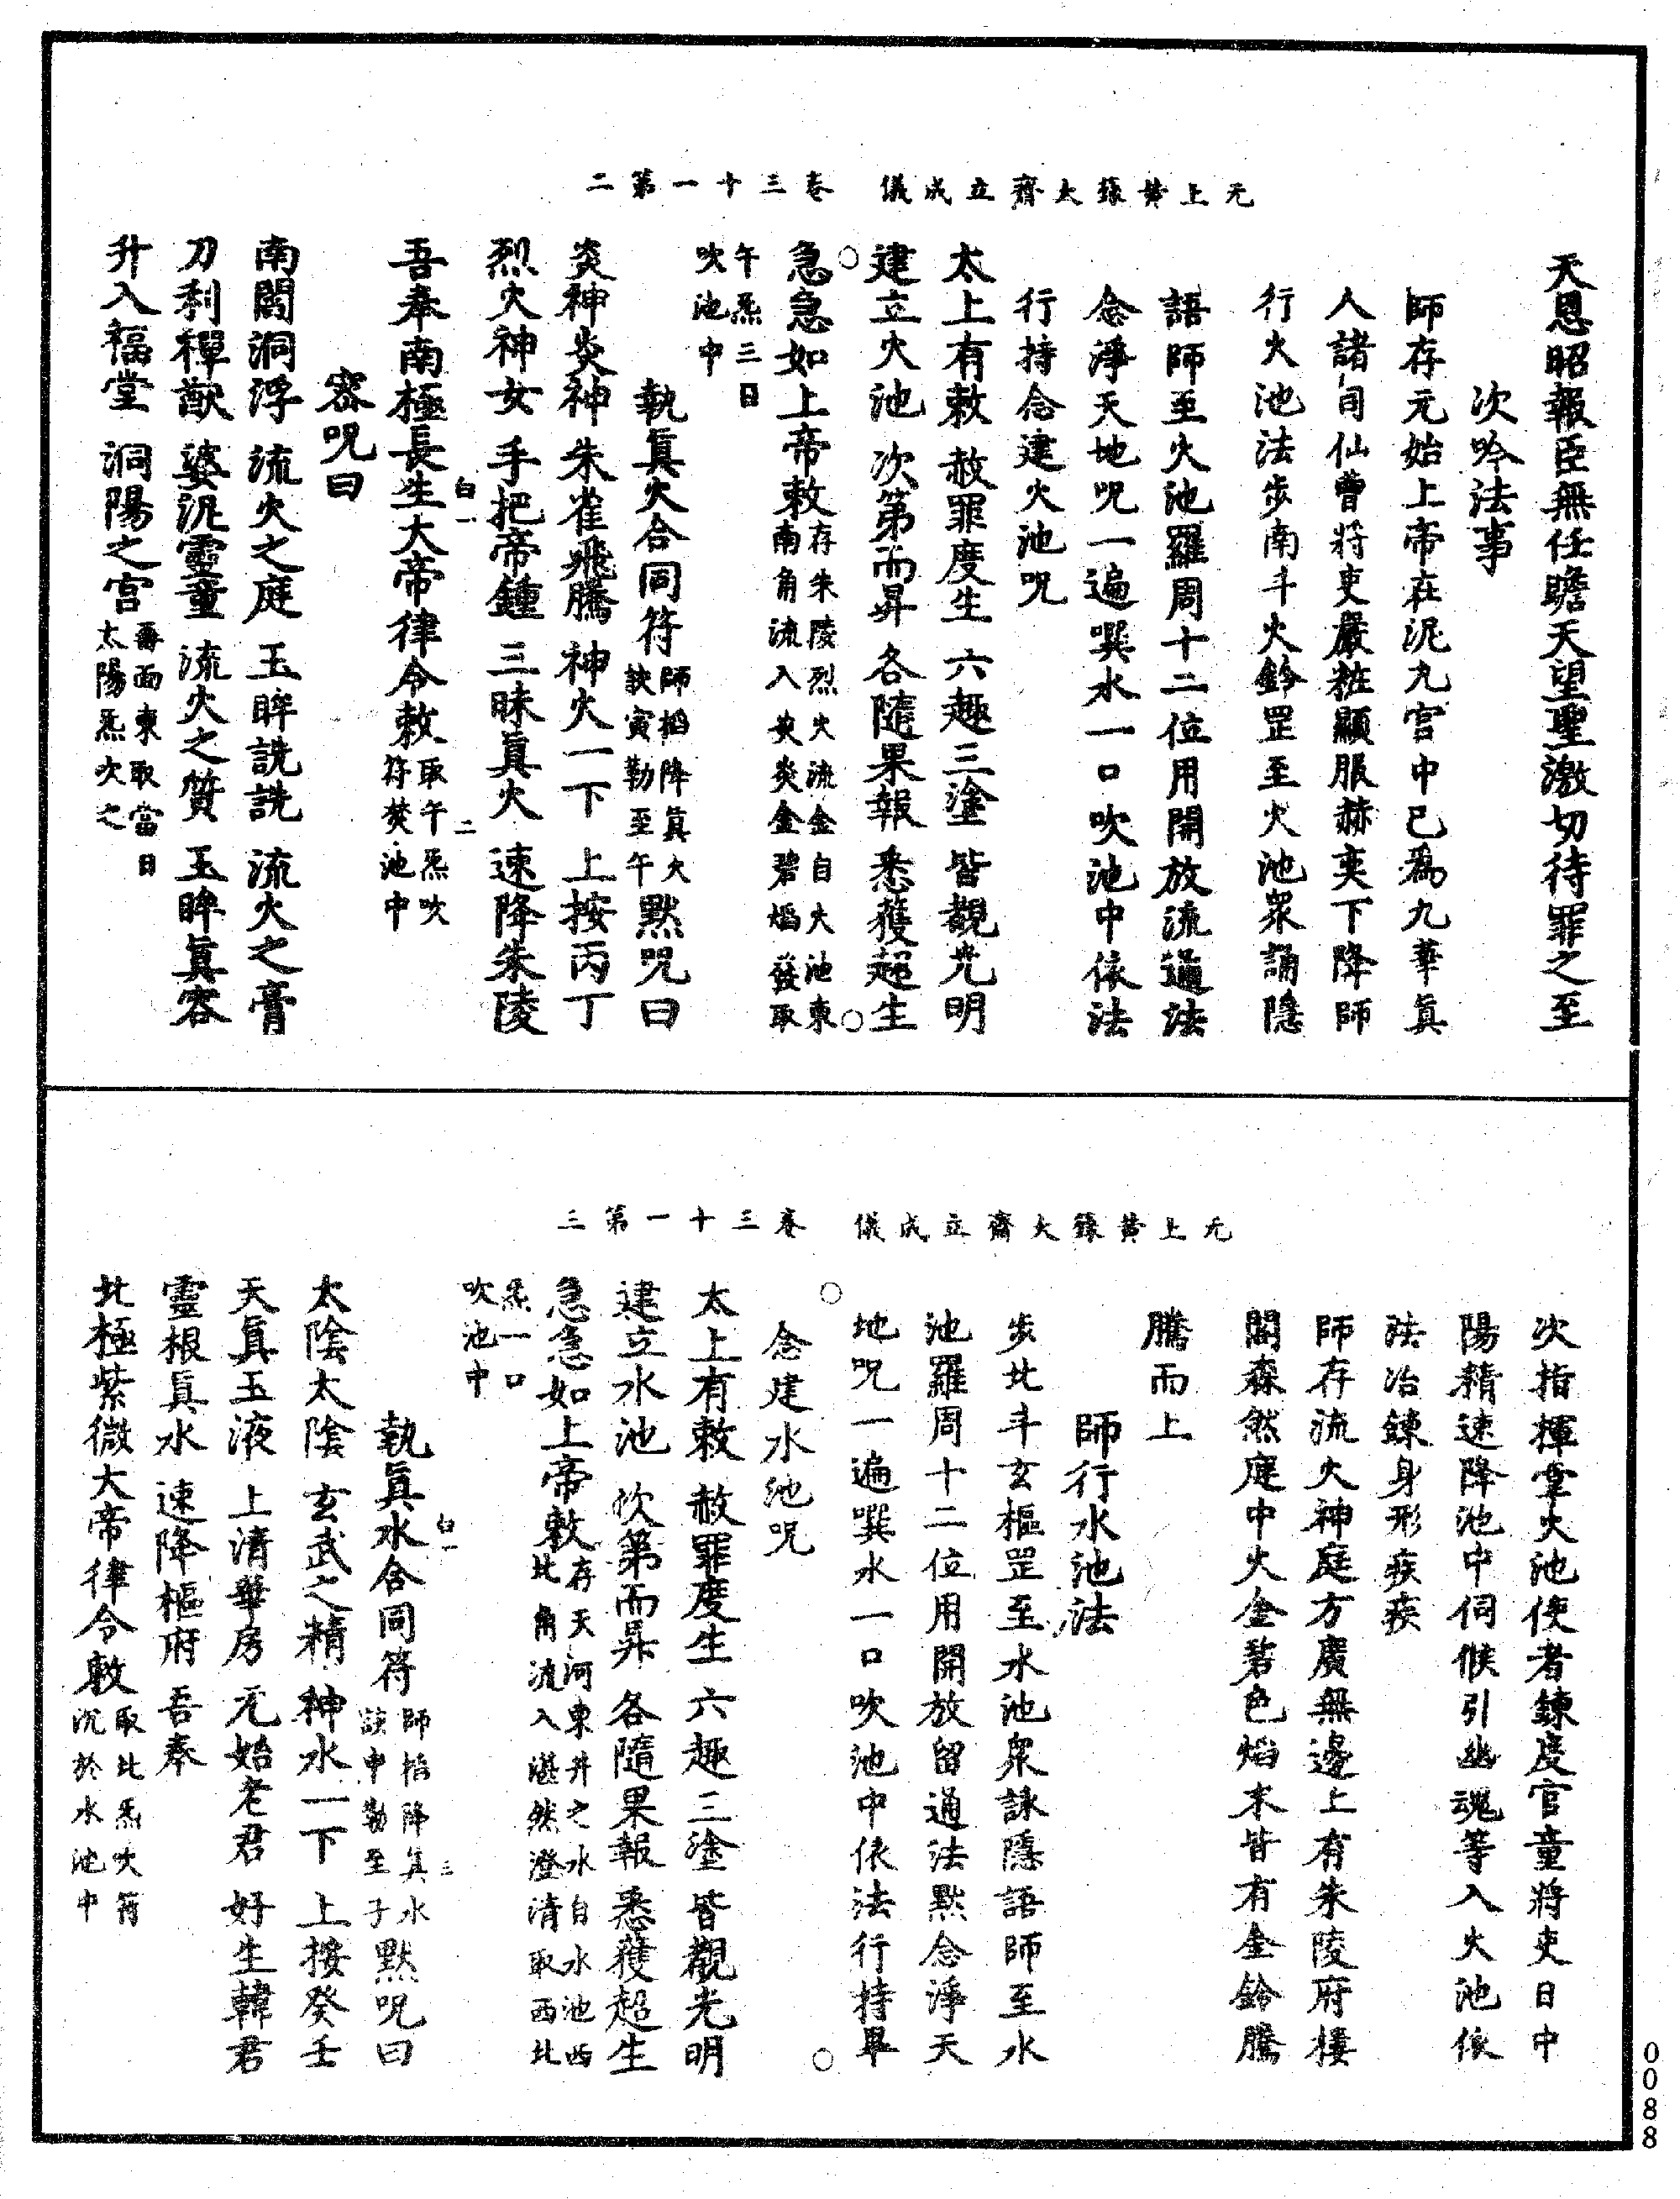 无上黃籙大齋立成儀　卷三十一第二
天恩昭報臣無任瞻天望聖激切待罪之至
次吟法事
師存元始上帝在泥丸宮中已爲九華眞
人諸司仙曹將吏嚴粧顯服赫奕下降師
行火池法步南斗火鈴罡至火池眾誦隱
語師至火池羅周十二位用開放流通法
念淨天地呪一遍噀水一口吹池中依法
行持念建火池呪
太上有敕　赦罪度生　六趣三塗　皆覩光明
建立火池　次第而昇　各隨果報　悉獲超生
急急如上帝敕存朱陵烈火流金自火池東南角流入炎炎金碧焰發取
午炁三口吹池中
執眞火合同符師掐降眞火訣寅勒至午默呪曰
炎神炎神　朱雀飛騰　神火一下　上按丙丁
烈火神女　手把帝鍾　三昧眞火　速降朱陵
吾奉南極長生大帝律令敕取午炁吹符焚池中
白一
二
密呪曰
南閻洞浮　流火之庭　玉眸詵詵　流火之膏
刀利禪猷　婆泥靈童　流火之質　玉眸眞容
升入福堂　洞陽之宮再面東取當日太陽炁吹之
无上黃籙大齋立成儀　卷三十一第三
次指揮掌火池使者鍊度官童將吏日中
陽精速降池中伺候引幽魂等入火池依
法冶鍊身形疾疾
師存流火神庭方廣無邊上有朱陵府樓
閣森然庭中火金碧色焰末皆有金鈴騰
騰而上
師行水池法
步北斗玄樞罡至水池眾詠隱語師至水
池羅周十二位用開放留通法默念淨天
地呪一遍噀水一口吹池中依法行持畢
念建水池呪
太上有敕　赦罪度生　六趣三塗　皆覩光明
建立水池　次第而昇　各隨果報　悉獲超生
急急如上帝敕存天河東井之水自水池西北角流入湛然澄清取西北
炁一口吹池中
白一
三
執眞水合同符師掐降眞水訣申勒至子默呪曰
太陰太陰　玄武之精　神水一下　上按癸壬
天眞玉液　上清華房　元始老君　好生韓君
靈根眞水　速降樞府　吾奉
北極紫微大帝律令敕取北炁吹符沉於水池中
0088